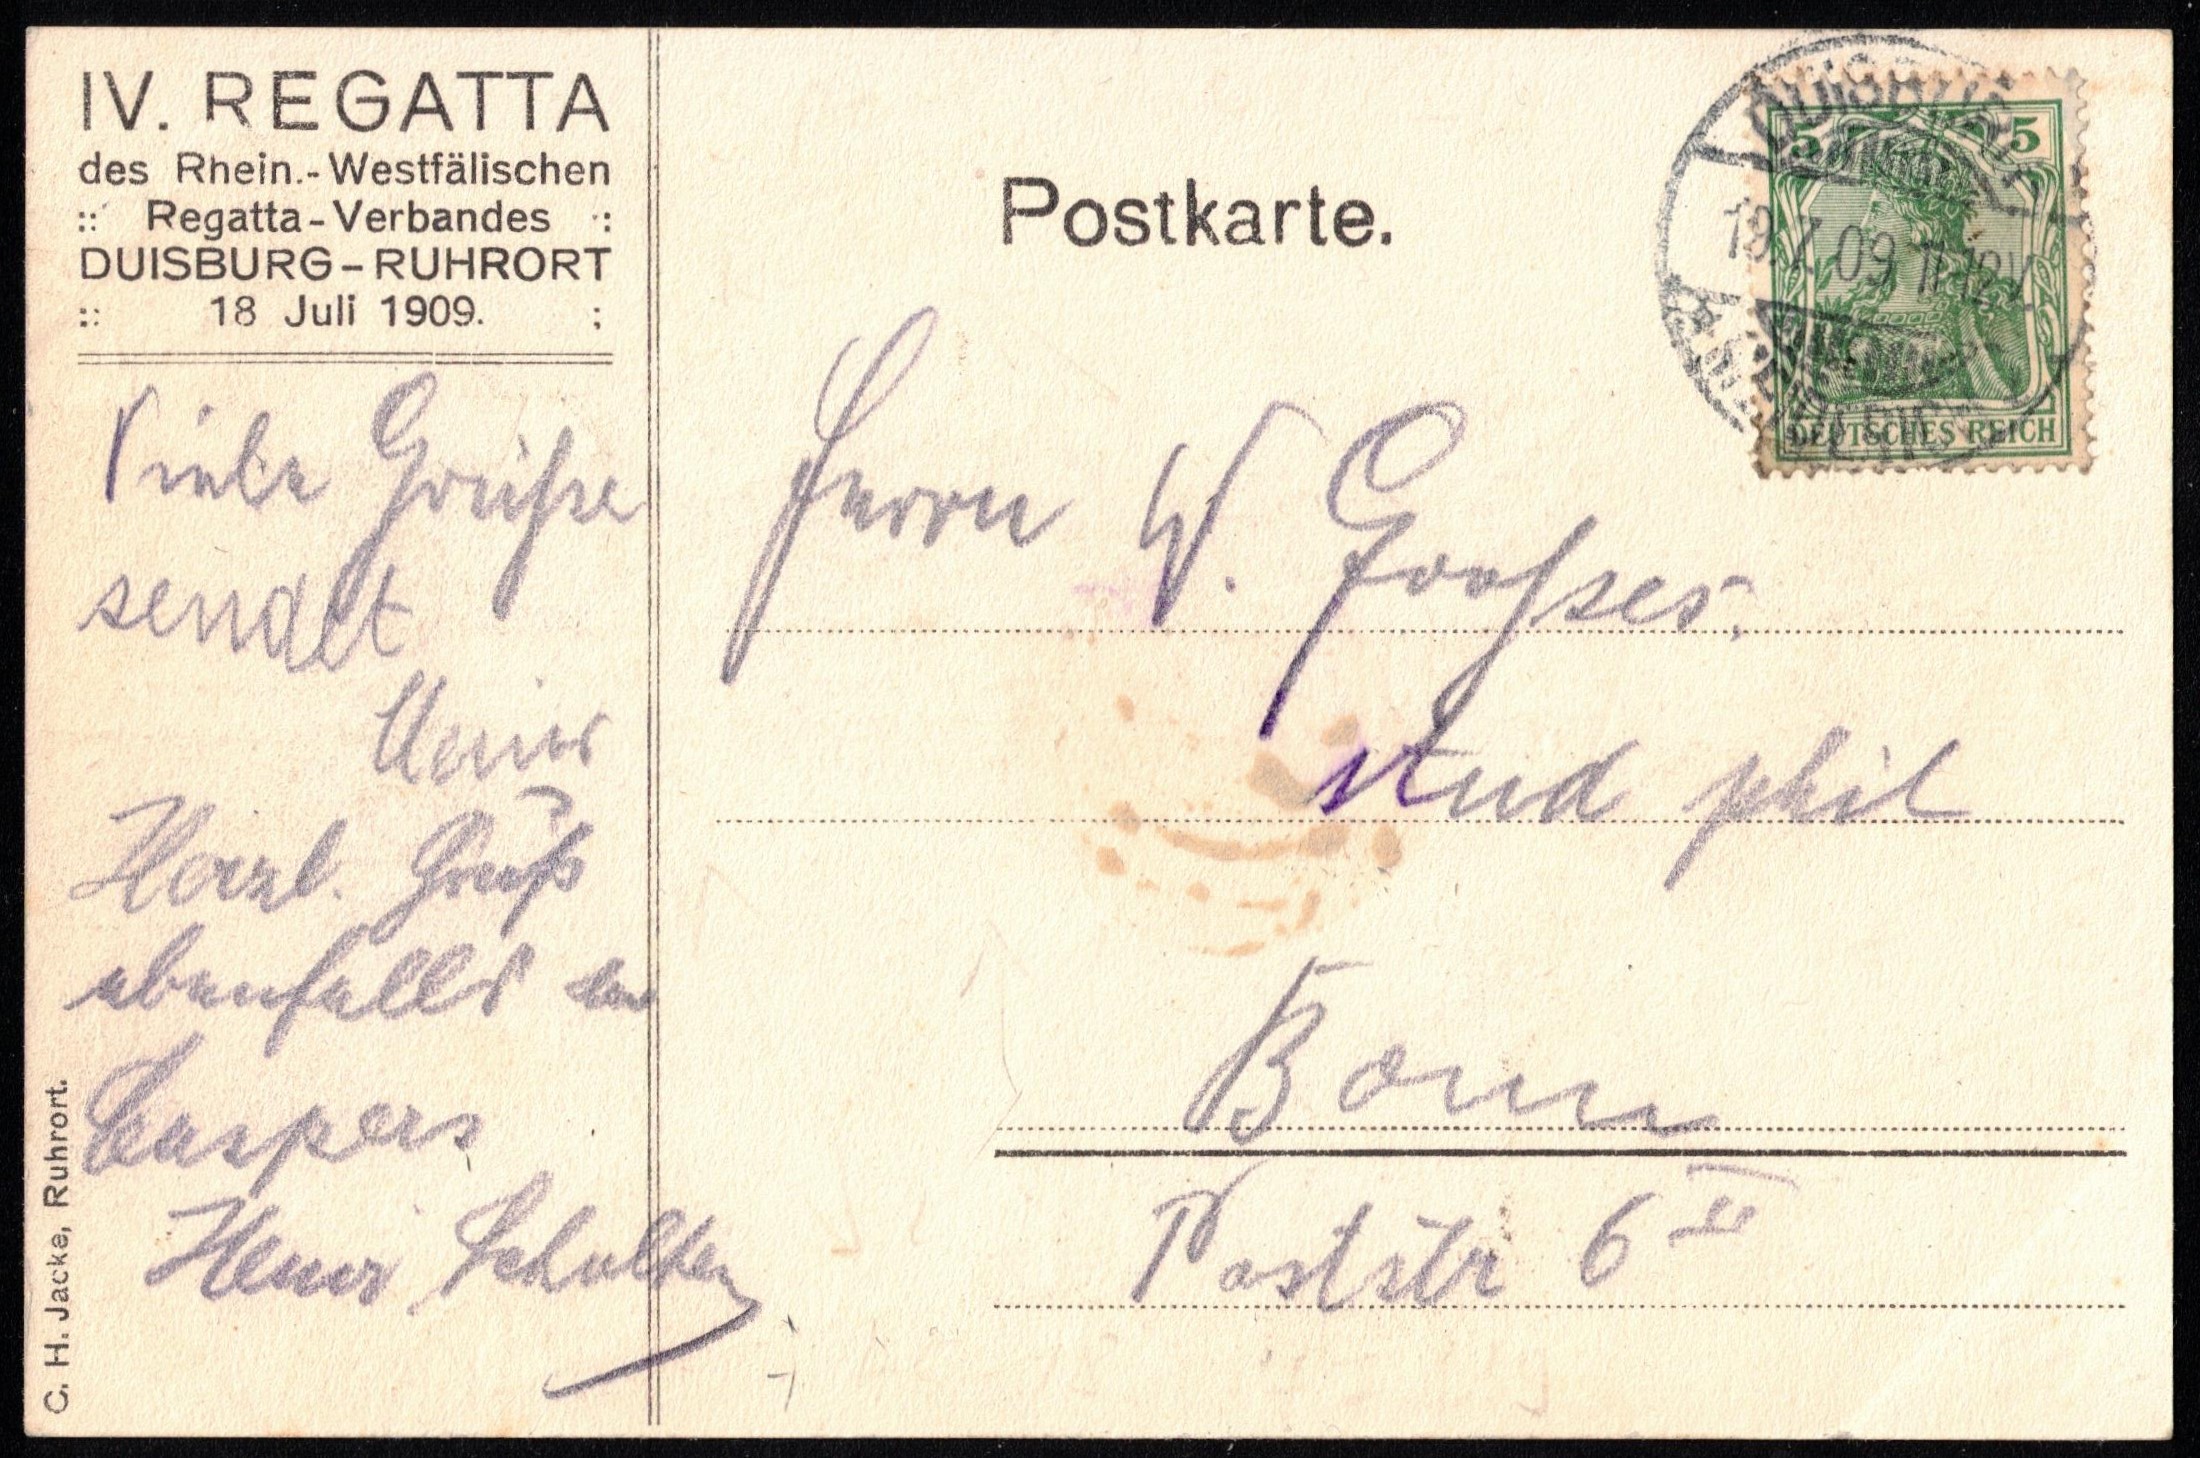 IV. REGATTA
des Rhein.-Westfälischen
:: Regatta-Verbandes ::
DUISBURG-RUHRORT
:: 18 Juli 1909. :
Viele Grüße
sendet
Herzl. Gruß
ebenfalls
Caspers
Heinr Schulten
C. H. Jacke, Ruhrort.
Postkarte.
DUISBURG
19.7.09 11-12V
5 5
DEUTSCHES REICH
Herrn W.
stud phil
Bonn
Poststr 6 II